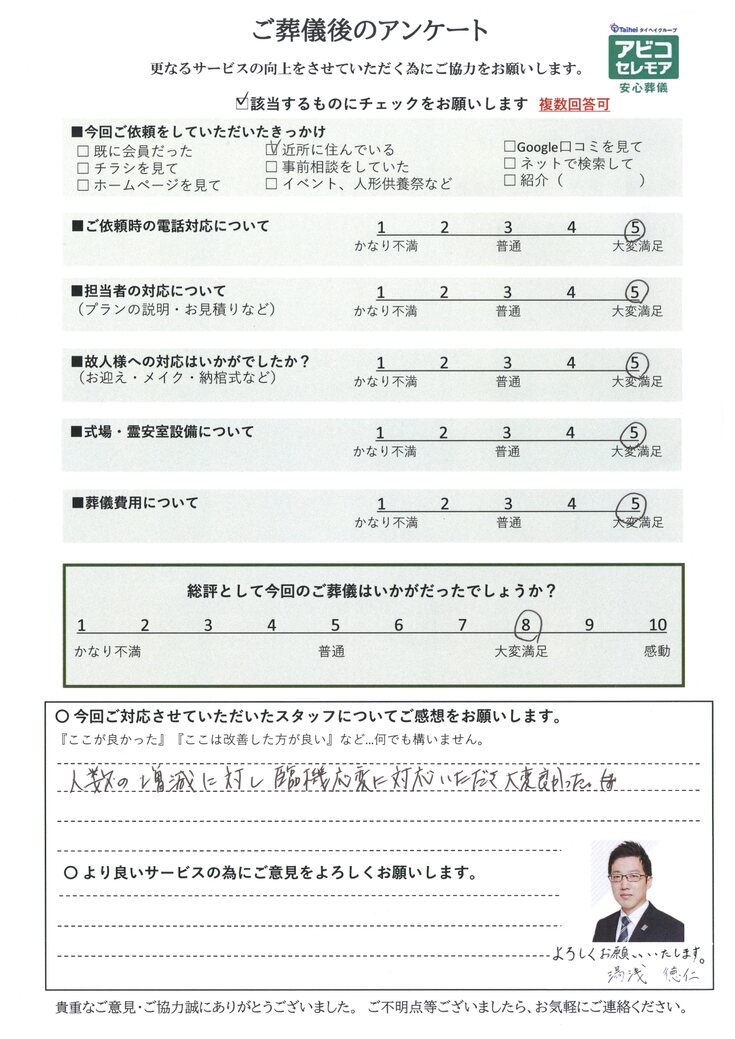 ご葬儀後のアンケート
Taihei タイヘイグループ
アビコ
セレモア
安心葬儀
更なるサービスの向上をさせていただく為にご協力をお願いします。
☑該当するものにチェックをお願いします 複数回答可
■今回ご依頼をしていただいたきっかけ
□ 既に会員だった ☑ 近所に住んでいる □Google口コミを見て
□ チラシを見て □ 事前相談をしていた □ ネットで検索して
□ ホームページを見て □ イベント、人形供養祭など □ 紹介（ ）
■ご依頼時の電話対応について 1 2 3 4 5
かなり不満 普通 大変満足
■担当者の対応について 1 2 3 4 5
（プランの説明・お見積りなど） かなり不満 普通 大変満足
■故人様への対応はいかがでしたか？ 1 2 3 4 5
（お迎え・メイク・納棺式など） かなり不満 普通 大変満足
■式場・霊安室設備について 1 2 3 4 5
かなり不満 普通 大変満足
■葬儀費用について 1 2 3 4 5
かなり不満 普通 大変満足
総評として今回のご葬儀はいかがだったでしょうか？
1 2 3 4 5 6 7 8 9 10
かなり不満 普通 大変満足 感動
〇 今回ご対応させていただいたスタッフについてご感想をお願いします。
『ここが良かった』『ここは改善した方が良い』など…何でも構いません。
人数の増減に対し臨機応変に対応いただき大変良かった。
〇 より良いサービスの為にご意見をよろしくお願いします。
よろしくお願いいたします。
湯浅 徳仁
貴重なご意見・ご協力誠にありがとうございました。 ご不明点等ございましたら、お気軽にご連絡ください。